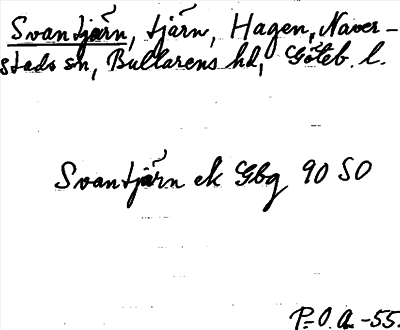 Svantjärn, tjärn, Hagen, Naver-
stads sn, Bullarens hd, Göteb. l.
Svantjärn ek Gbg 90 SO
P.O.A. -55.